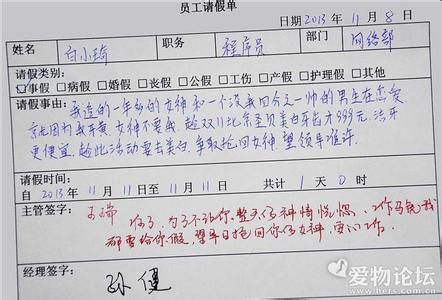 员工请假单
日期 2013 年 11 月 8 日
姓名 白小琦 职务 程序员 部门 网络部
请假类别:
☑事假 □病假 □婚假 □丧假 □公假 □工伤 □产假 □护理假 □其他
请假事由: 我追的一年多的女神和一个没我四分之一帅的男生在恋爱
就因为我牙黄女神不要我,趁双11北京圣贝美白牙齿才999元,洁牙
更便宜,趁此活动要去美白,争取抢回女神,望领导准许.
请假时间:
自 2013 年 11 月 11 日至 11 月 11 日 共计 1 天 0 时
主管签字: 准了,为了不让你整天精神恍惚,工作
都要给你假,早日抢回你的女神,安心工作.
经理签字: 孙健
爱物论坛
bbs.liers.com.cn